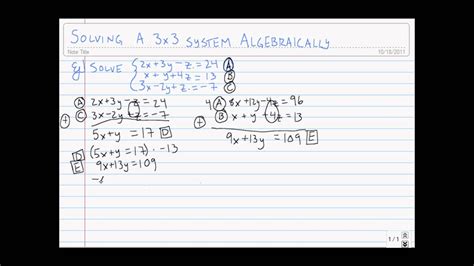 SOLVING A 3x3 SYSTEM ALGEBRAICALLY
Note Title
10/18/2011
Eg SOLVE { 2x+3y-z=24 Ⓐ
x+y+4z=13 Ⓑ
3x-2y+z=-7 Ⓒ
Ⓐ 2x+3y-z=24
Ⓒ 3x-2y+z=-7
⊕
5x+y=17 [D]
4Ⓐ 8x+12y-4z=96
Ⓑ x+y+4z=13
⊕
9x+13y=109 [E]
[D] (5x+y=17)·-13
[E] 9x+13y=109
1/1